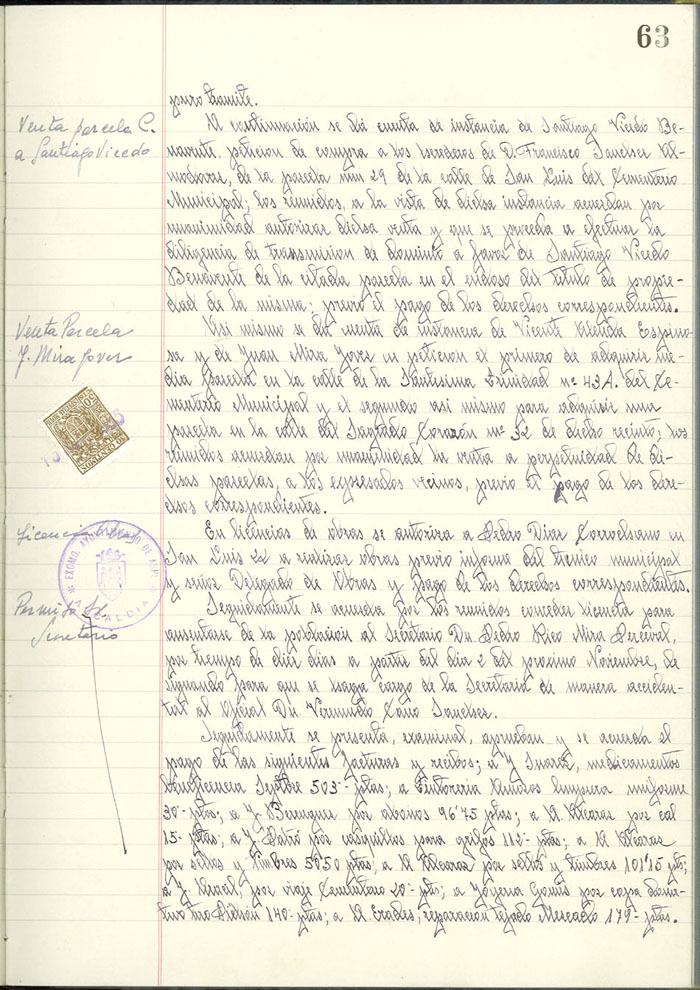 63
puro tramite.
Venta parcela C.
a Santiago Vicedo
A continuacion se dá cuenta de instancia de Santiago Vicedo Be-
navent, peticion de compra a los herederos de D. Francisco Sanchez Al-
modovar, de la parcela num 29 de la calle de San Luis del Cementerio
Municipal; los reunidos, a la vista de dicha instancia acuerdan por
unanimidad autorizar dicha venta y que se proceda a efectuar la
diligencia de transmision de dominio a favor de Santiago Vicedo
Benavent de la citada parcela en el endoso del titulo de propie-
dad de la misma; previo el pago de los derechos correspondientes.
Venta Parcela
J. Mira Jover
Asi mismo se dá cuenta de instancia de Vicente Alenda Espino-
sa y de Juan Mira Jover en peticion el primero de adquirir me-
dia parcela en la calle de la Santisima Trinidad nº 43A. del Ce-
menterio Municipal y el segundo asi mismo para adquirir una
parcela en la calle del Sagrado Corazón nº 32 de dicho recinto; los
reunidos acuerdan por unanimidad la venta a perpetuidad de di-
chas parcelas, a los expresados vecinos, previo el pago de los dere-
chos correspondientes.
Licencia
EXCMO. AYUNTAMIENTO DE ASPE
ALCALDIA
En licencias de obras se autoriza a Pedro Diaz en
San Luis 22 a realizar obras previo informe del tecnico municipal
y señor Delegado de Obras y pago de los derechos correspondientes.
Permiso Sr.
Secretario
Seguidamente se acuerda por los reunidos conceder licencia para
ausentarse de la poblacion al Secretario Dn Pedro Rico Mira Perceval,
por tiempo de diez dias a partir del dia 2 del proximo Noviembre, de
signando para que se haga cargo de la Secretaria de manera acciden-
tal al Oficial Dn. Veremundo Cano Sanchez.
Seguidamente se presenta, examinan, aprueban y se acuerda el
pago de las siguientes facturas y recibos; a J Suarez, medicamentos
beneficencia Septbre 503- ptas; a Tintoreria limpieza uniforme
30- ptas; a J. Berenguer por abonos 96'75 ptas; a M Alcaraz por cal
15- ptas; a J. por casquillos para grifos 113- ptas; a M Alcaraz
por sellos y timbres 50'50 ptas; a M Alcaraz por sellos y timbres 101'15 pts;
a J. por viaje Cementerio 20- pts; a Joyeria Gomis por copa dona-
tivo tiro Pichon 140- ptas; a M Erades, reparacion tejado Mercado 179- ptas.